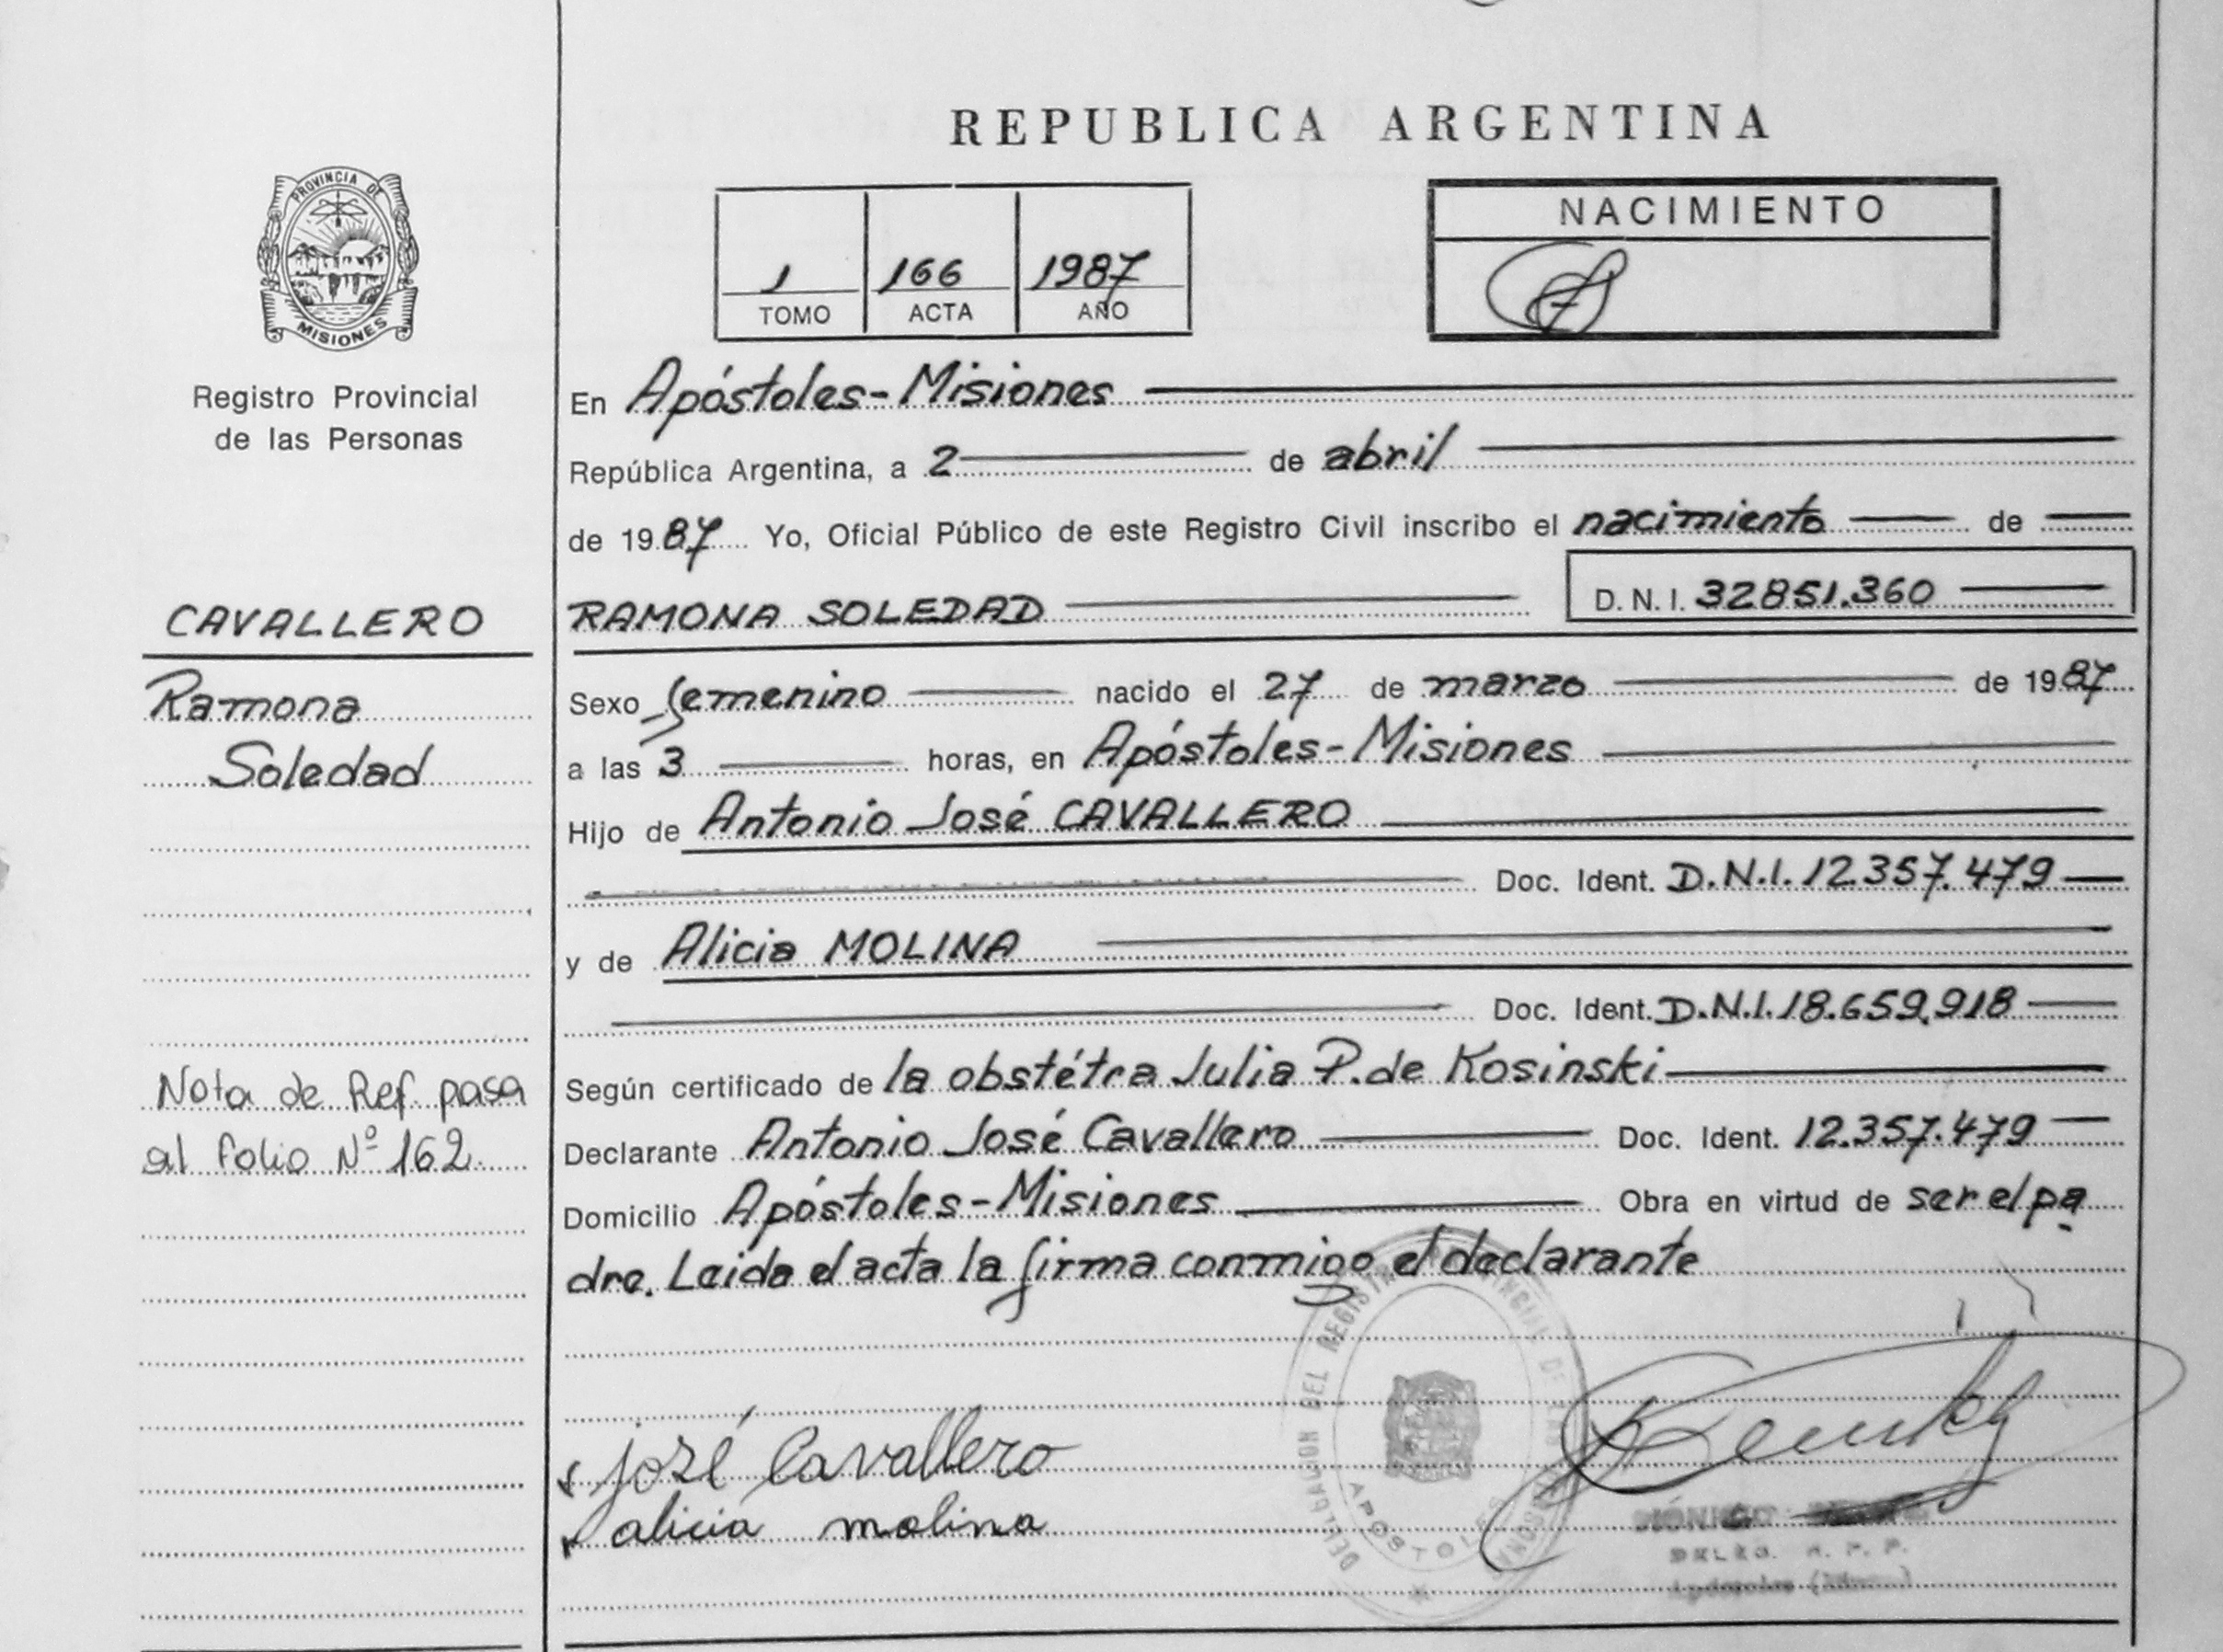 REPUBLICA ARGENTINA
PROVINCIA DE
MISIONES
Registro Provincial
de las Personas
1 166 1987
TOMO ACTA AÑO
NACIMIENTO
En Apóstoles-Misiones
República Argentina, a 2 de abril
de 1987 Yo, Oficial Público de este Registro Civil inscribo el nacimiento de
CAVALLERO
Ramona
Soledad
RAMONA SOLEDAD D.N.I. 32851.360
Sexo femenino nacido el 27 de marzo de 1987
a las 3 horas, en Apóstoles-Misiones
Hijo de Antonio José CAVALLERO
Doc. Ident. D.N.I. 12.357.479
y de Alicia MOLINA
Doc. Ident. D.N.I. 18.659.918
Nota de Ref. pasa
al folio Nº 162.
Según certificado de la obstétra Julia P. de Kosinski
Declarante Antonio José Cavallero Doc. Ident. 12.357.479
Domicilio Apóstoles-Misiones Obra en virtud de ser el pa
dre. Leida el acta la firma conmigo el declarante
josé Cavallero
alicia molina
DELEGACION DEL REGISTRO PROVINCIAL DE LAS PERSONAS
APOSTOLES
DELEG. R. P. P.